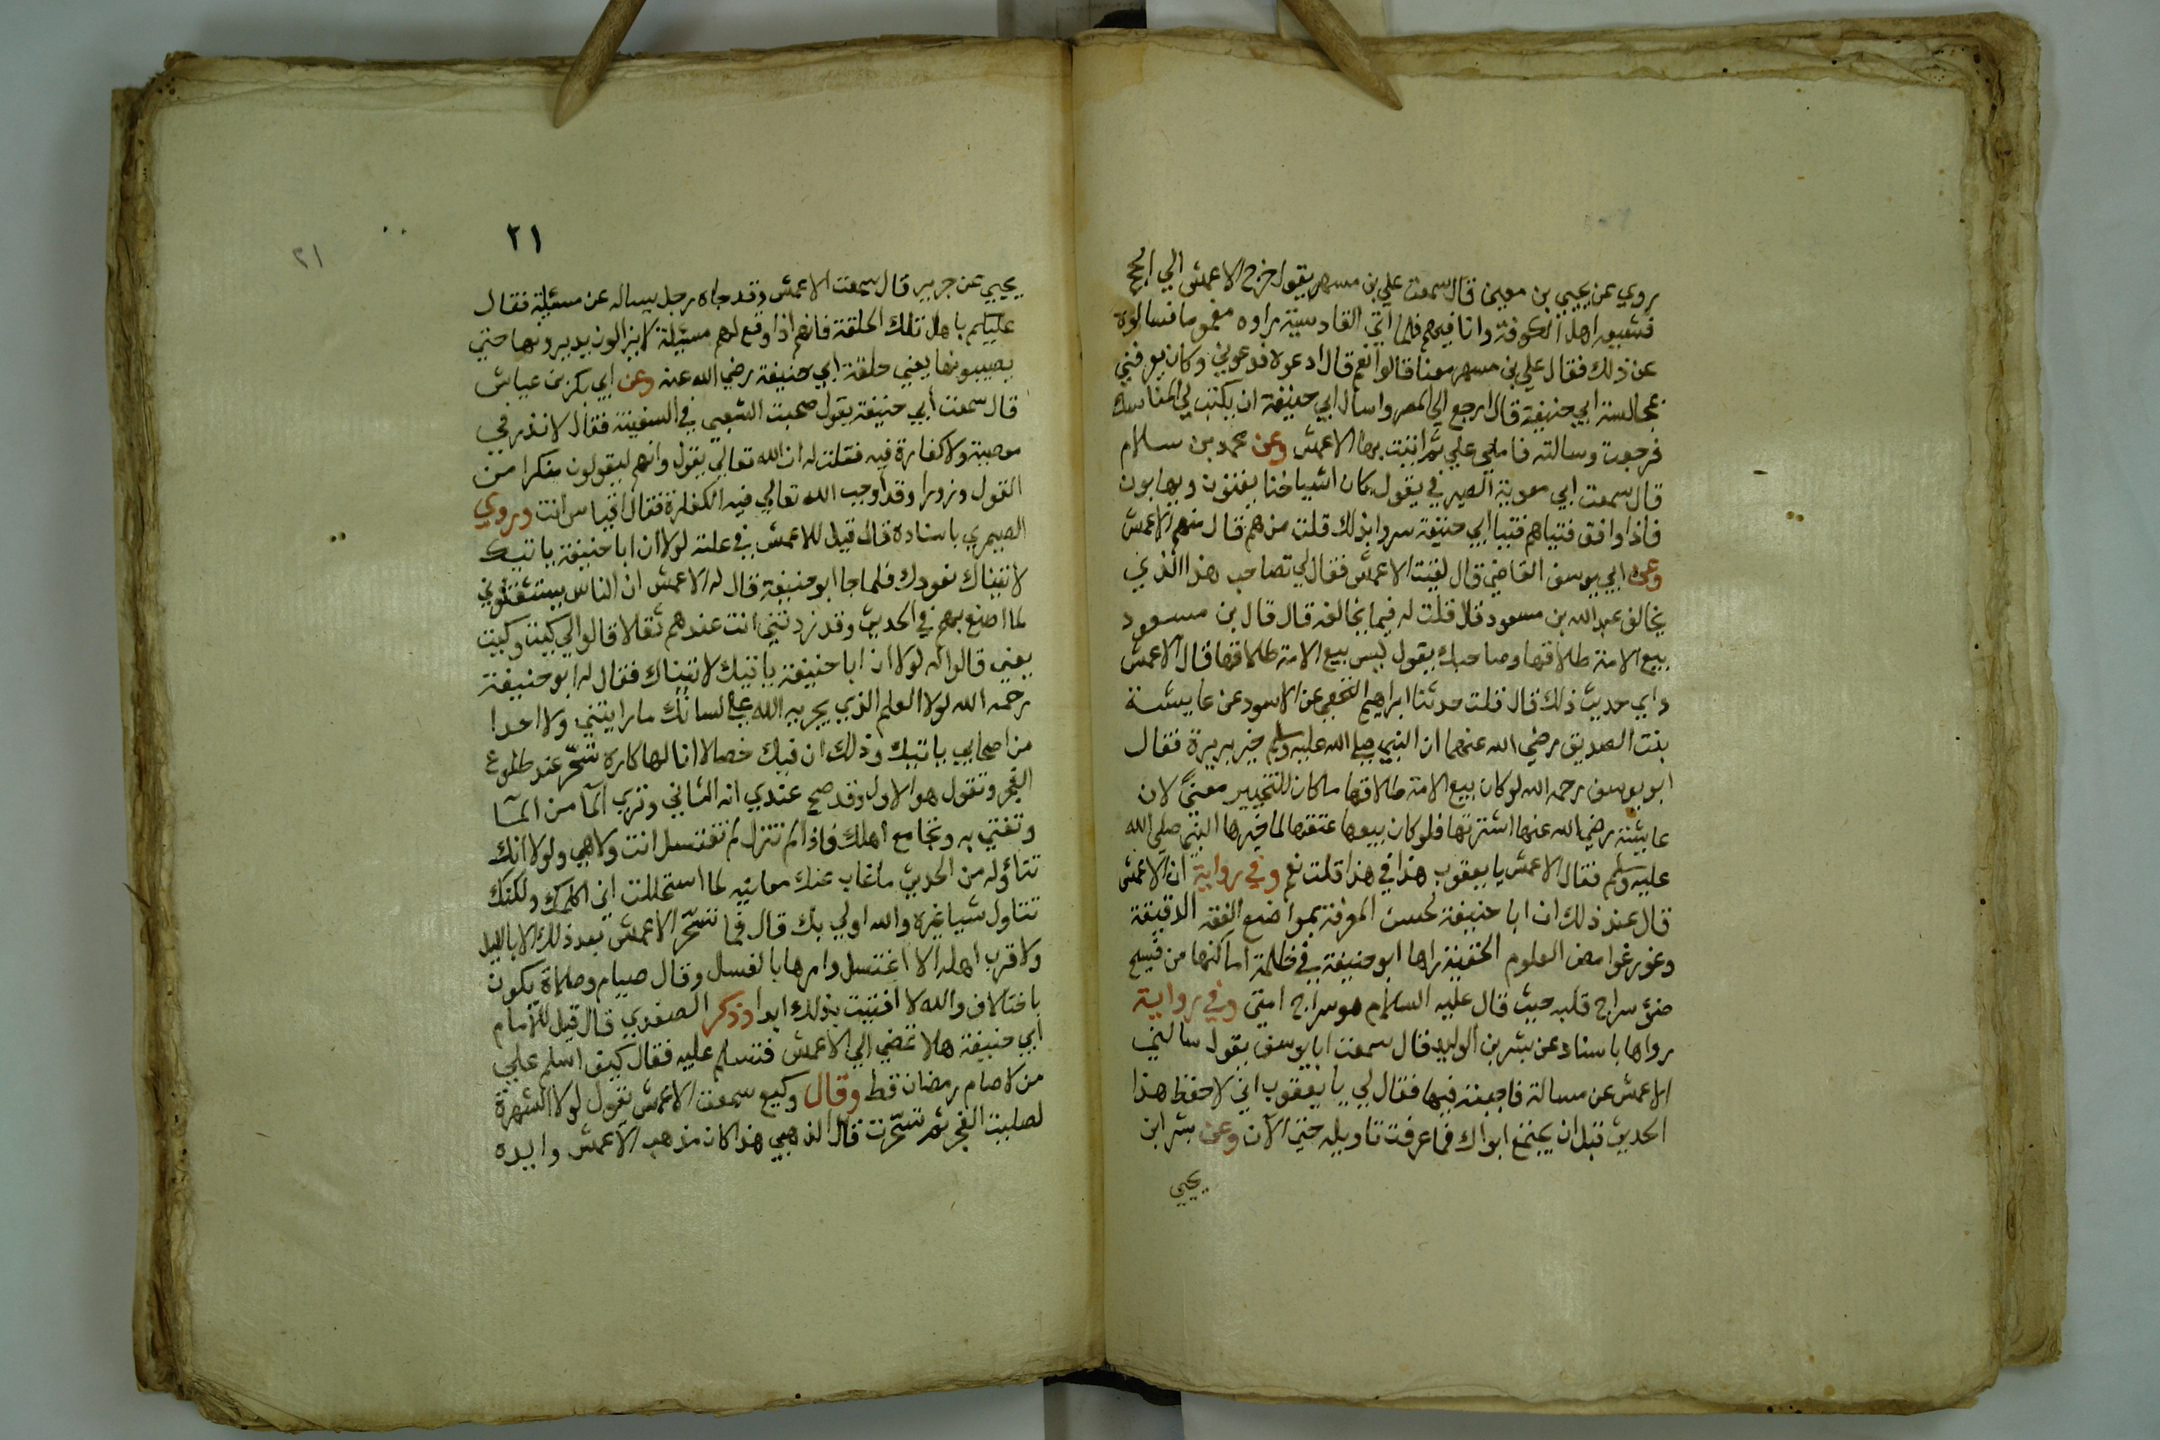 روي عن يحيي بن معين قال سمعت علي بن مسهر يقول خرج الاعمش الي الحج
فشيعه اهل الكوفة وانا فيهم فلما اتي القادسية راوه مغموما فسالوه
عن ذلك فقال علي بن مسهر معنا قالوا نعم قال ادعوه فدعوني وكان يعرفني
بمجالسة ابي حنيفة قال ارجع الي المصر واسال ابي حنيفة ان يكتب لي المناسك
فرجعت وسالته فاملي علي ثم اتيت بها الاعمش وعن محمد بن سلام
قال سمعت ابي معوية الضرير في يقول كان اشياخنا يفتون ويهابون
فاذا وافق فتياهم فتيا ابي حنيفة سروا بذلك قلت من هم قال منهم الاعمش
وعن ابي يوسف القاضي قال لقيت الاعمش فقال لي تصاحب هذا الذي
يخالف عبد الله بن مسعود قال قلت له فيما يخالفه قال قال بن مسعود
بيع الامة طلاقها وصاحبك يقول ليس بيع الامة طلاقها قال الاعمش
واي حديث ذلك قال قلت حدثنا ابراهيم النخعي عن الاسود عن عايشة
بنت الصديق رضي الله عنهما ان النبي صلي الله عليه وسلم خير بريرة فقال
ابو يوسف رحمه الله لو كان بيع الامة طلاقها ما كان للتخيير معني لان
عايشة رضي الله عنها اشترتها فلو كان بيعها عتقها لما خيرها النبي صلي الله
عليه وسلم فقال الاعمش يا يعقوب هذا في هذا قلت نعم وفي رواية ان الاعمش
قال عند ذلك ان ابا حنيفة لحسن المعرفة بمواضع الفقه الدقيقة
وغور غوامض العلوم الخفية راها ابو حنيفة في ظلمة اماكنها من فسيح
ضوء سراج قلبه حيث قال عليه السلام هو سراج امتي وفي رواية
رواها باسناد عن بشر بن الوليد قال سمعت ابا يوسف يقول سالني
الاعمش عن مسالة فاجبته فيها فقال لي يا يعقوب اني لاحفظ هذا
الحديث قبل ان يجتمع ابواك فما عرفت تاويله حتي الآن وعن بشر ابن
يحيي
٢١
٢١
يحيي عن جرير قال سمعت الاعمش وقد جاه رجل يساله عن مسئلة فقال
عليكم باهل تلك الحلقة فانهم اذا وقع لهم مسئلة لا يزالون يديرونها حتي
يصيبونها يعني حلقة ابي حنيفة رضي الله عنه وعن ابي بكر بن عياش
قال سمعت أبي حنيفة يقول صحبت الشعبي في السفينة فقال لا نذر في
معصية ولا كفارة فيه فقلت له ان الله تعالي يقول وانهم ليقولون منكرا من
القول وزورا وقد أوجب الله تعالي فيه الكفارة فقال اقياس انت وروي
الصيمري باسناده قال قيل للاعمش في علته لولا ان ابا حنيفة ياتيك
لاتيناك نعودك فلما جا ابو حنيفة قال له الاعمش ان الناس يستثقلوني
لما اصنع بهم في الحديث وقد زدتني انت عندهم ثقلا قالوا لي كيت وكيت
يعني قالوا له لولا ان ابا حنيفة ياتيك لاتيناك فقال له ابو حنيفة
رحمه الله لولا العلم الذي يجريه الله علي لسانك ما رايتني ولا احدا
من اصحابي ياتيك وذلك ان فيك خصالا انا لها كاره تتسحر عند طلوع
الفجر وتقول هو الاول وقد صح عندي انه الثاني وتري المآ من المآ
وتفتي به وتجامع اهلك فاذا لم تنزل لم تغتسل انت ولا هي ولولا انك
تتأوله من الحديث ما غاب عنك معانيه لما استحللت اني اكلمك ولكنك
تتاول شيا غيره والله اولي بك قال فما تسحر الاعمش بعد ذلك الا بالليل
ولا قرب اهله الا اغتسل وامرها بالغسل وقال صيام وصلاة يكون
باختلاف والله لا افتيت بذلك ابدا وذكر الصفدي قال قيل للامام
أبي حنيفة هلا تمضي الي الاعمش فتسلم عليه فقال كيف اسلم علي
من لا صام رمضان قط وقال وكيع سمعت الاعمش يقول لولا الشهرة
لصليت الفجر ثم تسحرت قال الذهبي هذا كان مذهب الاعمش وايده